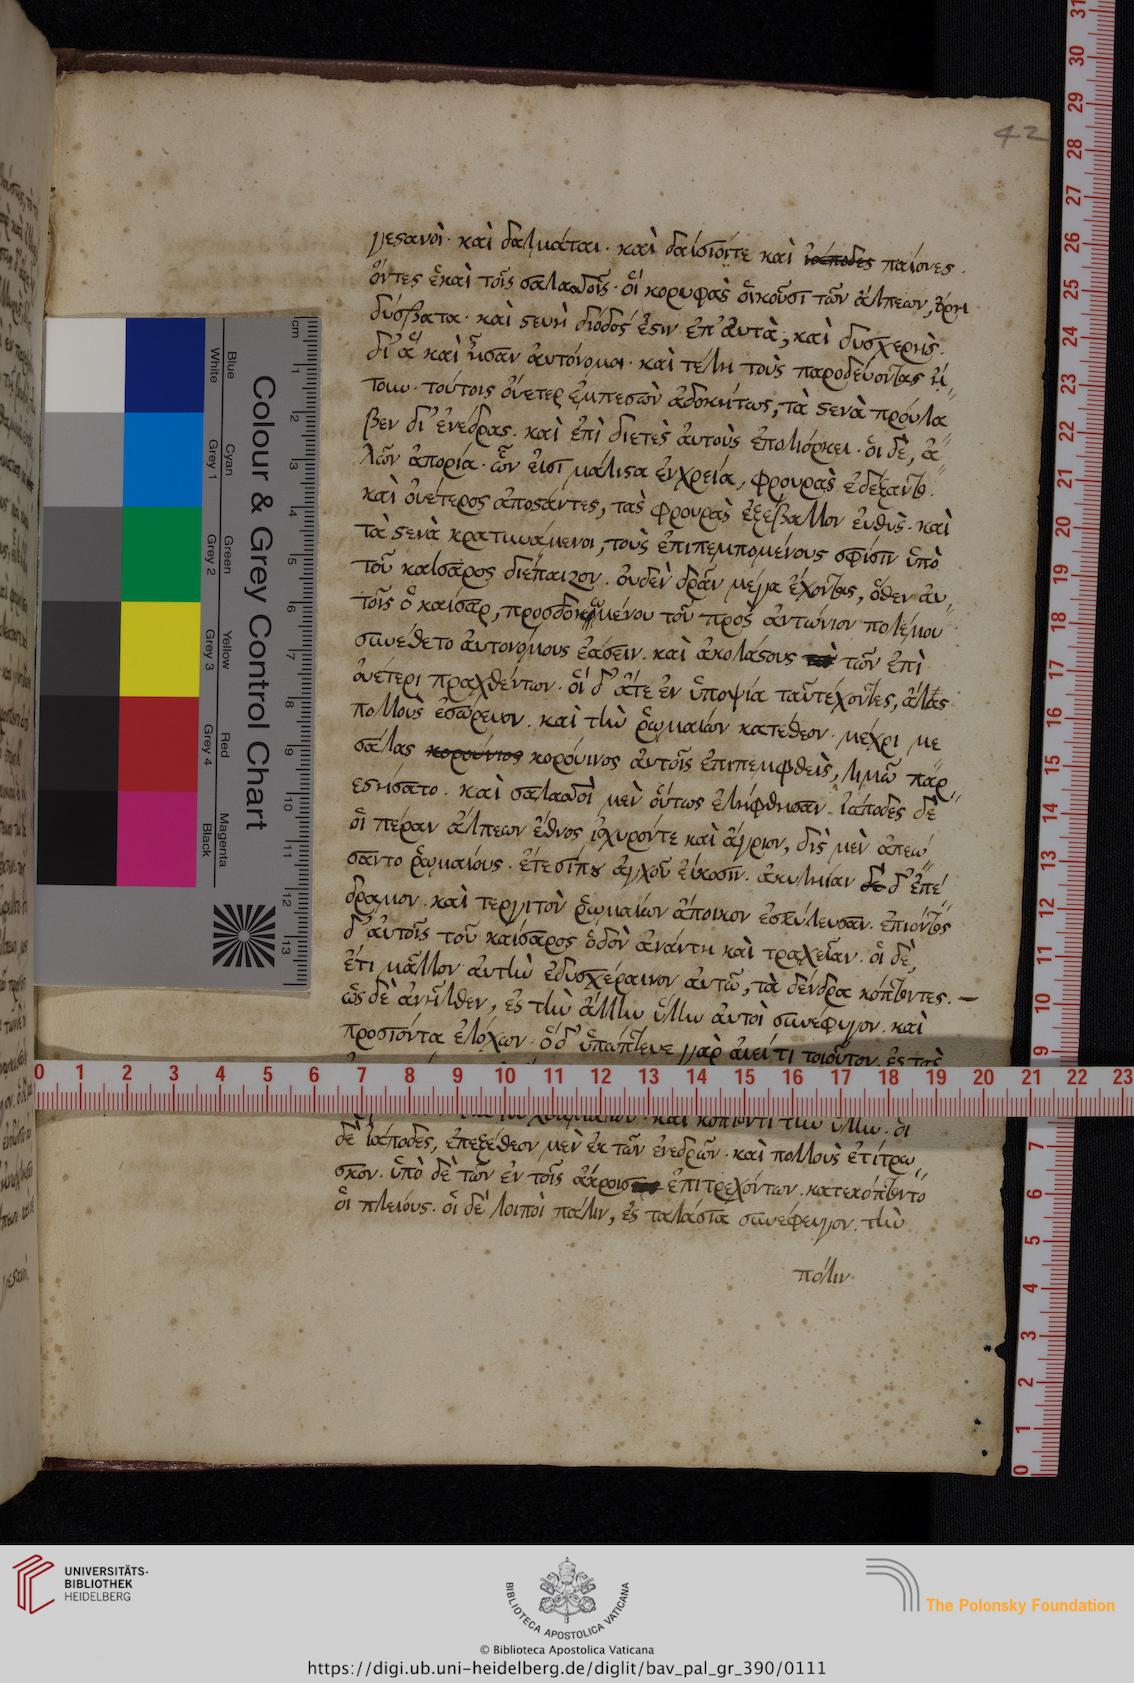 42
γεστανοὶ· καὶ δαλμάται· καὶ δαίσιοίτε καὶ ἰάποδες παίονες·
ὄντες ἕκαὶ τοῖς σαλασσοῖς· οἳ κορυφὰς οἰκοῦσι τῶν ἄλπεων, ὄρη
δύσβατα· καὶ στενὴ δίοδός ἐστιν ἐπ' αὐτὰ, καὶ δυσχερής·
δι' ἃ καὶ ἦσαν αὐτόνομοι· καὶ τέλη τοὺς παροδεύοντας
τούτοις ὀυετερ ἐμπεσὼν ἀδοκήτως, τὰ στενὰ πρόυλα
βεν δι' ἐνέδρας· καὶ ἐπὶ διετὲς αὐτοὺς ἐπολιόρκει· οἱ δὲ, ἁ
λῶν ἀπορία· ὧν εἰσι μάλιστα ἐνχρεία, φρουρὰς ἐδέξαντο·
καὶ ὀυέτερος ἀποστάντες, τὰς φρουρὰς ἐξέβαλλον εὐθὺς· καὶ
τὰ στενὰ κρατυνάμενοι, τοὺς ἐπιπεμπομένους σφίσιν ὑπὸ
τοῦ καίσαρος διέπαιζον· οὐδὲν δρᾶν μέγα ἔχοντας, ὅθεν αὐ
τοῖς ὁ καίσαρ, προσδοκωμένου τοῦ πρὸς ἀντώνιον πολέμου
συνέθετο αὐτονόμους ἐάσειν· καὶ ἀκολάστους τῶν ἐπὶ
ὀυέτερι πραχθέντων· οἱ δ' ἅτε ἐν ὑποψία ταῦτέχοντες, ἅλας
πολλοὺς ἐσώρευον· καὶ τὴν ῥωμαίων κατέθεον· μέχρι με
σάλας κορούνιος κορόυινος αὐτοῖς ἐπιπεμφθεὶς, λιμῶ παρ
εστήσατο· καὶ σαλασσοὶ μὲν οὕτως ἐλήφθησαν· ἰάποδες δὲ
οἱ πέραν ἄλπεων ἔθνος ἰσχυρόντε καὶ ἄγριον, δὶς μὲν ἀπεώ
σαντο ῥωμαίους· ἔτεσίπου ἀγχοῦ εἴκοσιν· ἀκυληίαν δὲ δ' ἐπέ
δραμον· καὶ τεργιτὸν ῥωμαίων ἄποικον ἐσκύλευσαν· ἐπιόντος
δ' αὐτοῖς τοῦ καίσαρος ὁδὸν ἀνάντη καὶ τραχεῖαν· οἱ δὲ,
ἔτι μᾶλλον αὐτὴν ἐδυσχέραινον αὐτῶ, τὰ δένδρα κόπτοντες·—
ὡς δὲ ἀνῆλθεν, ἐς τὴν ἄλλην ὕλην αὐτοὶ συνέφυγον· καὶ
προσιόντα ἐλόχων· ὁ δ' ὑπώπτευε γὰρ ἀιείτι τοιοῦτον· ἐς τὰς
καὶ κόπτοντι τὴν ὕλην· οἱ
δὲ ἰάποδες, ἐπεξέθεον μὲν ἐκ τῶν ἐνεδρῶν· καὶ πολλοὺς ἐτίτρω
σκον· ὑπὸ δὲ τῶν ἐν τοῖς ἄκροις ἐπιτρεχόντων· κατεκόπτοντο
οἱ πλείους· οἱ δὲ λοιποὶ πάλιν, ἐς ταλάσία συνέφευγον· τὴν
πόλιν
Colour & Grey Control Chart
Blue
Cyan
Green
Yellow
Red
Magenta
White
Grey 1
Grey 2
Grey 3
Grey 4
Black
cm
1
2
3
4
5
6
7
8
9
10
11
12
13
0 1 2 3 4 5 6 7 8 9 10 11 12 13 14 15 16 17 18 19 20 21 22 23
31
30
29
28
27
26
25
24
23
22
21
20
19
18
17
16
15
14
13
12
11
10
9
7
6
5
4
3
2
1
0
UNIVERSITÄTS-
BIBLIOTHEK
HEIDELBERG
BIBLIOTECA APOSTOLICA VATICANA
The Polonsky Foundation
© Biblioteca Apostolica Vaticana
https://digi.ub.uni-heidelberg.de/diglit/bav_pal_gr_390/0111